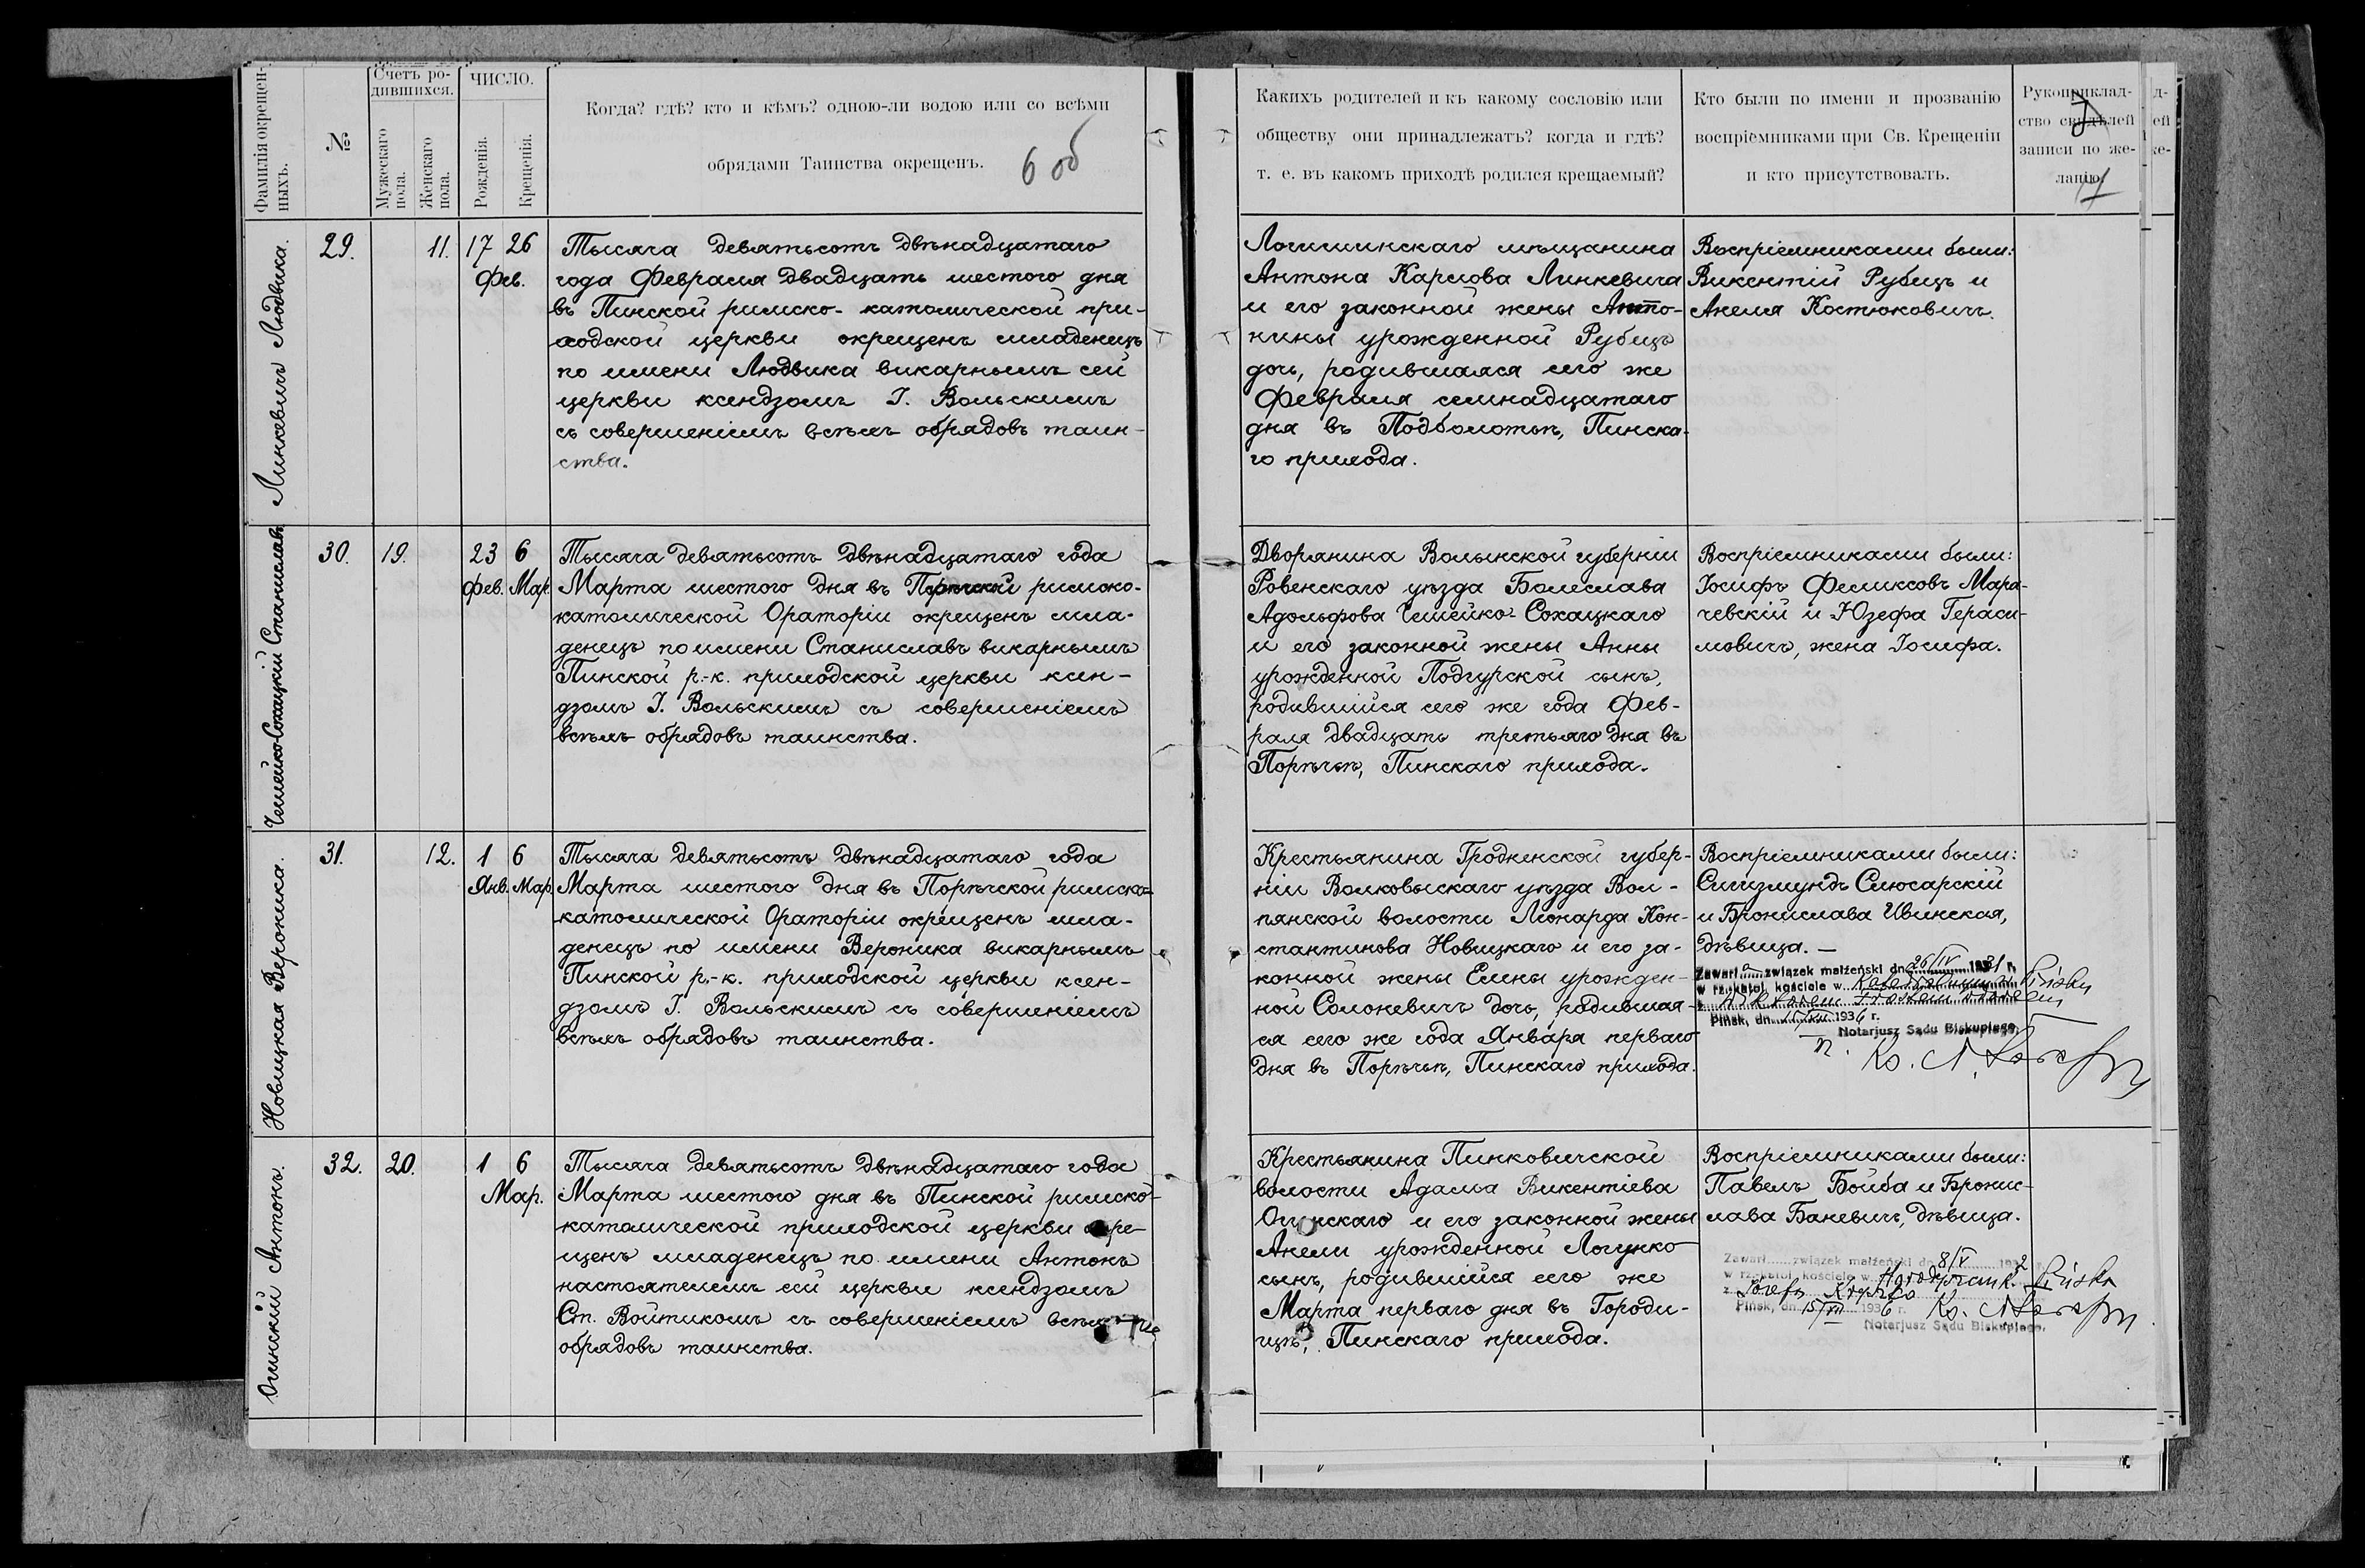 Фамилія окрещен-
ныхъ.
№
Счетъ ро-
дившихся.
Мужескаго
пола.
Женскаго
пола.
ЧИСЛО.
Рожденія.
Крещенія.
Когда? гдѣ? кто и кѣмъ? одною-ли водою или со всѣми
обрядами Таинства окрещенъ.
6 об
Какихъ родителей и къ какому сословію или
обществу они принадлежатъ? когда и гдѣ?
т. е. въ какомъ приходѣ родился крещаемый?
Кто были по имени и прозванію
воспріемниками при Св. Крещеніи
и кто присутствовалъ.
Рукоприклад-
ство свидѣлей
записи по же-
ланію.
Линкевичъ Людвика.
29.
11.
17 26
Фев.
Тысяча девятьсотъ двѣнадцатаго
года Февраля двадцать шестого дня
въ Пинской римско-католической при-
ходской церкви окрещенъ младенецъ
по имени Людвика викарнымъ сей
церкви ксендзомъ І. Вольскимъ
съ совершеніемъ всѣхъ обрядовъ таин-
ства.
Логишинскаго мѣщанина
Антона Карлова Линкевича
и его законной жены Анто-
нины урожденной Рубецъ
дочь, родившаяся сего же
Февраля семнадцатаго
дня въ Подболотьѣ, Пинска-
го прихода.
Воспріемниками были:
Викентій Рубецъ и
Анеля Костюковичъ.
Чешейко-Сохацкій Станиславъ
30.
19.
23 6
Фев. Мар.
Тысяча девятьсотъ двѣнадцатаго года
Марта шестого дня въ Порѣчской римско-
католической Ораторіи окрещенъ мла-
денецъ по имени Станиславъ викарнымъ
Пинской р.-к. приходской церкви ксен-
дзомъ І. Вольскимъ съ совершеніемъ
всѣхъ обрядовъ таинства.
Дворянина Волынской губерніи
Ровенскаго уѣзда Болеслава
Адольфова Чешейко-Сохацкаго
и его законной жены Анны
урожденной Подгурской сынъ,
родившійся сего же года Фев-
раля двадцать третьяго дня въ
Порѣчьѣ, Пинскаго прихода.
Воспріемниками были:
Іосифъ Феликсовъ Мара-
чевскій и Юзефа Гераси-
мовичъ, жена Іосифа.
Новицкая Вероника.
31.
12.
1 6
Янв. Мар.
Тысяча девятьсотъ двѣнадцатаго года
Марта шестого дня въ Порѣчской римско-
католической Ораторіи окрещенъ мла-
денецъ по имени Вероника викарнымъ
Пинской р.-к. приходской церкви ксен-
дзомъ І. Вольскимъ съ совершеніемъ
всѣхъ обрядовъ таинства.
Крестьянина Гродненской губер-
ніи Волковыскаго уѣзда Вол-
пянской волости Леонарда Кон-
стантинова Новицкаго и его за-
конной жены Елены урожден-
ной Солоневичъ дочь, родившая-
ся сего же года Января перваго
дня въ Порѣчьѣ, Пинскаго прихода.
Воспріемниками были:
Сигизмундъ Слюсарскій
и Бронислава Ивинская,
дѣвица.
Zawarł a związek małżeński dn. 26/IV 1931 r.
w rz.-katol. kościele w Pińsku
z
Pińsk, dn. 15/XII 1936 r.
Notarjusz Sądu Biskupiego.
Огинскій Антонъ.
32.
20.
1 6
Мар.
Тысяча девятьсотъ двѣнадцатаго года
Марта шестого дня въ Пинской римско-
католической приходской церкви окре-
щенъ младенецъ по имени Антонъ
настоятелемъ сей церкви ксендзомъ
Ст. Войтикомъ съ совершеніемъ всѣхъ
обрядовъ таинства.
Крестьянина Пинковичской
волости Адама Викентіева
Огинскаго и его законной жены
Анели урожденной Логунко
сынъ, родившійся сего же
Марта перваго дня въ Городи-
щѣ, Пинскаго прихода.
Воспріемниками были:
Павелъ Бойба и Бронис-
лава Баневичъ, дѣвица.
Zawarł związek małżeński dn. 8/V 1932 r.
w rz.-katol. kościele w
z
Pińsk, dn. 15/XII 1936 r.
Notarjusz Sądu Biskupiego.